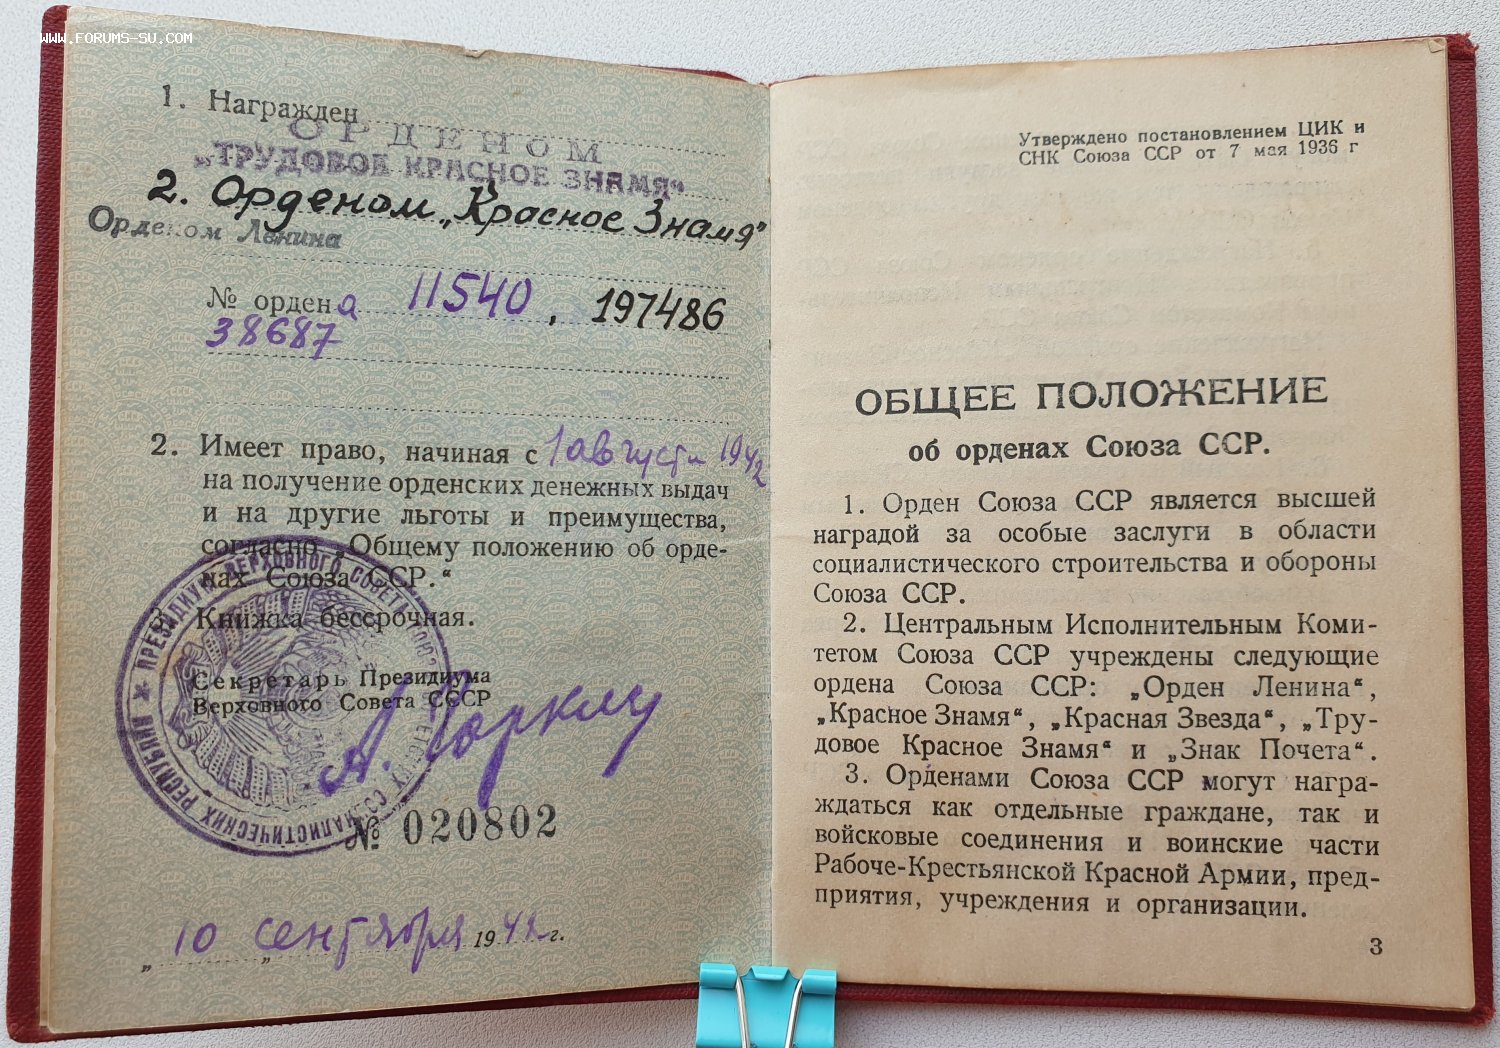 www.forums-su.com
1. Награжден
ОРДЕНОМ
„ТРУДОВОЕ КРАСНОЕ ЗНАМЯ“
2. Орденом „Красное Знамя"
Орденом Ленина
№ ордена 11540, 197486
38687
2. Имеет право, начиная с 1 августа 1942
на получение орденских денежных выдач
и на другие льготы и преимущества,
согласно „Общему положению об орде-
нах Союза ССР.“
3. Книжка бессрочная.
ПРЕЗИДИУМ ВЕРХОВНОГО СОВЕТА СОЮЗА СОВЕТСКИХ СОЦИАЛИСТИЧЕСКИХ РЕСПУБЛИК
Секретарь Президиума
Верховного Совета СССР
А. Горкин
№ 020802
„10" сентября 1942 г.
Утверждено постановлением ЦИК и
СНК Союза ССР от 7 мая 1936 г
ОБЩЕЕ ПОЛОЖЕНИЕ
об орденах Союза ССР.
1. Орден Союза ССР является высшей
наградой за особые заслуги в области
социалистического строительства и обороны
Союза ССР.
2. Центральным Исполнительным Коми-
тетом Союза ССР учреждены следующие
ордена Союза ССР: „Орден Ленина“,
„Красное Знамя“, „Красная Звезда“, „Тру-
довое Красное Знамя“ и „Знак Почета“.
3. Орденами Союза ССР могут награ-
ждаться как отдельные граждане, так и
войсковые соединения и воинские части
Рабоче-Крестьянской Красной Армии, пред-
приятия, учреждения и организации.
3